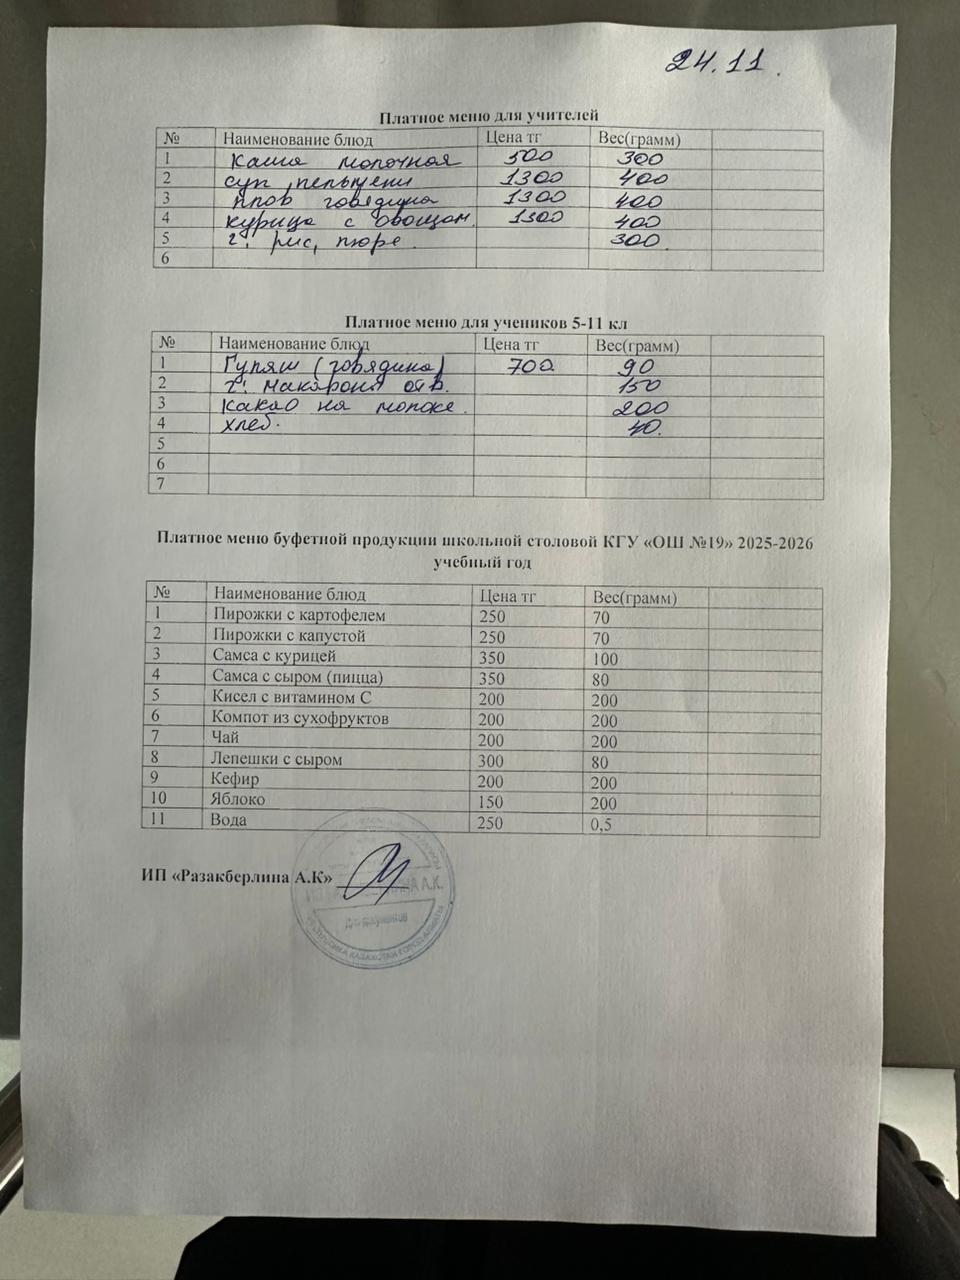 24.11.
Платное меню для учителей
№ Наименование блюд Цена тг Вес(грамм)
1 каша молочная 500 300
2 суп пельмени 1300 400
3 плов говядина 1300 400
4 курица с овощам. 1300 400
5 г: рис, пюре. 300.
6
Платное меню для учеников 5-11 кл
№ Наименование блюд Цена тг Вес(грамм)
1 Гуляш (говядина) 700 90
2 г: макароны отв. 150
3 какао на молоке. 200
4 хлеб. 40.
5
6
7
Платное меню буфетной продукции школьной столовой КГУ «ОШ №19» 2025-2026
учебный год
№ Наименование блюд Цена тг Вес(грамм)
1 Пирожки с картофелем 250 70
2 Пирожки с капустой 250 70
3 Самса с курицей 350 100
4 Самса с сыром (пицца) 350 80
5 Кисел с витамином С 200 200
6 Компот из сухофруктов 200 200
7 Чай 200 200
8 Лепешки с сыром 300 80
9 Кефир 200 200
10 Яблоко 150 200
11 Вода 250 0,5
ИП «Разакберлина А.К»
А.К.
Для документов
РЕСПУБЛИКА КАЗАХСТАН ГОРОД АЛМАТЫ